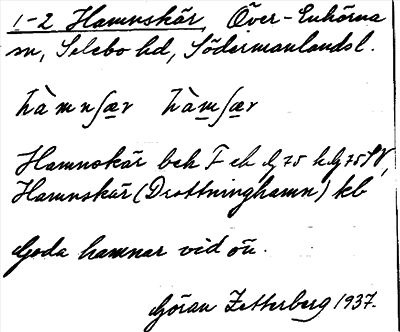 1-2 Hamnskär, Över-Enhörna
sn, Selebo hd, Södermanlands l.
hàmnʃær hàmʃær
Hamnskär beh F ek
Hamnskär (Drottninghamn) kb
Goda hamnar vid ön.
Göran Zetterberg 1937.